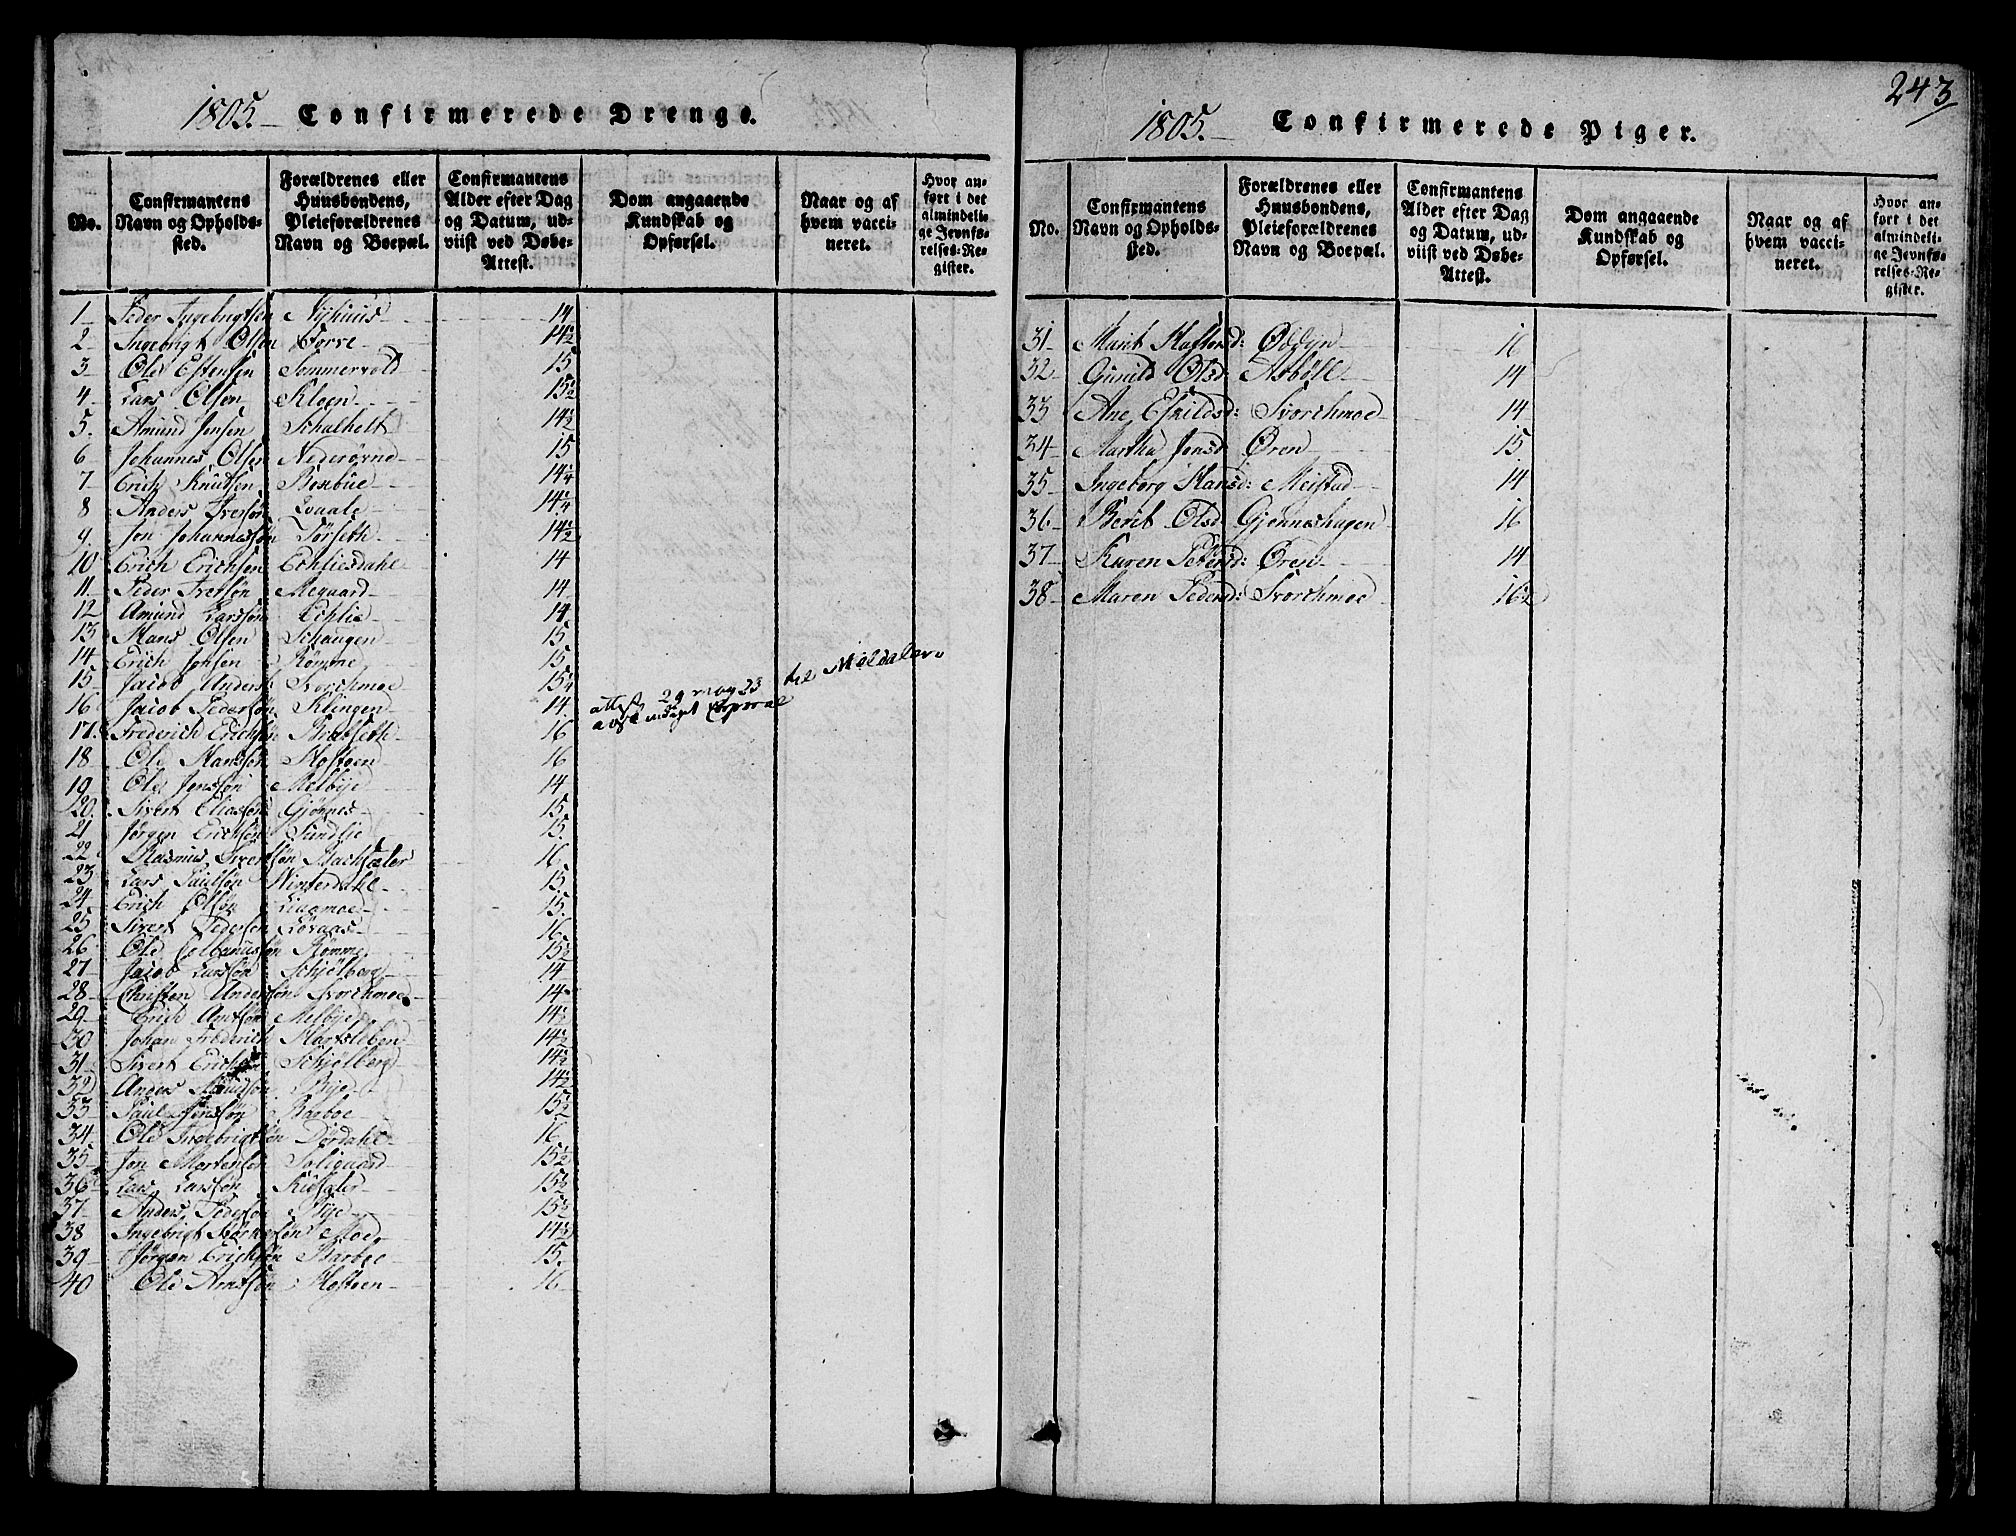 243
1805. Confirmerede Drenge.
No.
Confirmantens Navn og Opholdssted.
Forældrenes eller Huusbondens, Pleieforældrenes Navn og Boepæl.
Confirmantens Alder efter Dag og Datum, udviist ved Døbe-Attest.
Dom angaaende Kundskab og Opførsel.
Naar og af hvem vaccineret.
Hvor anført i det almindelige Jevnførelses-Register.
1 Peder Ingebrigtsen Nyhuus 14
2 Ingebrigt Olsen Forve 14½
3 Ole Estensen Sommervold 15
4 Lars Olsen Kloen 15½
5. Amund Jonsen Schalholt 14½
6 Johannes Olsen 15
7 Erich Knudsen Rosbue 14¼
8 Anders Iversøn Qvaale 14¼
9. Jon Johannessøn Tørseth 14½
10 Erich Erichsen Echliesdahl 14
11. Peder Iversøn Megaard 14
12 Amund Larsøn Echlie 14
13 Hans Olsen Schaugen 15
14 Erich Jonsen Rømme 15
15 Jacob Anders: Svorchmoe 15¼
16 Jacob Pedersøn Klingen 14 attest 29 may 23 til Meldalen
17. Frederich Erichsøn Bratseth 16
18 Ole Hansøn Hostoen 16
19 Ole Jonssøn Melbye 14
20. Sivert Eliasøn Gjønnes 15
21 Jørgen Erichsøn Sundlie 15
22 Rasmus Sivertsøn 16
23 Lars Paulsøn Winterdahl 15
24 Erich Olsøn Liagmoe 15
25 Sivert Pedersen Løvaas 16
26 Ole Colbanussøn Rømme 15½
27 Jacob Larsøn Schjølberg 14
28 Christen Andersøn Svorchmoe 14
29 Erich Arntsøn Melbye 14½
30 Johan Frederich Hartsleben 14½
31 Sivert Erichsøn Schjølberg 14½
32 Anders Knudsøn Bye 14½
33 Paul Jonssøn Barboe 15½
34 Ole Ingebrigtsøn Dørdahl 16
35 Jon Mortensøn Soligaard 15½
36 Lars Larssøn 15½
37 Anders Pedersøn Nye 15½
38 Ingebrigt Moe 14½
39 Jørgen Erichsøn Barboe 15
40 Ole Arntsøn Hostoen 16
1805. Confirmerede Piger.
No.
Confirmantens Navn og Opholdssted.
Forældrenes eller Huusbondens, Pleieforældrenes Navn og Boepæl.
Confirmantens Alder efter Dag og Datum, udviist ved Døbe-Attest.
Dom angaaende Kundskab og Opførsel.
Naar og af hvem vaccineret.
Hvor anført i det almindelige Jevnførelses-Register.
31 Marit Haftorsd: 16
32 Gunild Olsd: Asbøll 14
33 Ane Eskildsd: Svorchmoe 14
34 Martha Jonsd: Øren 15
35 Ingeborg Hansd: Meistad 14
36 Berit Olsd: Gjønneshagen 16
37 Karen Petersd: Øren 14
38 Maren Pedersd: Svorchmoe 16½